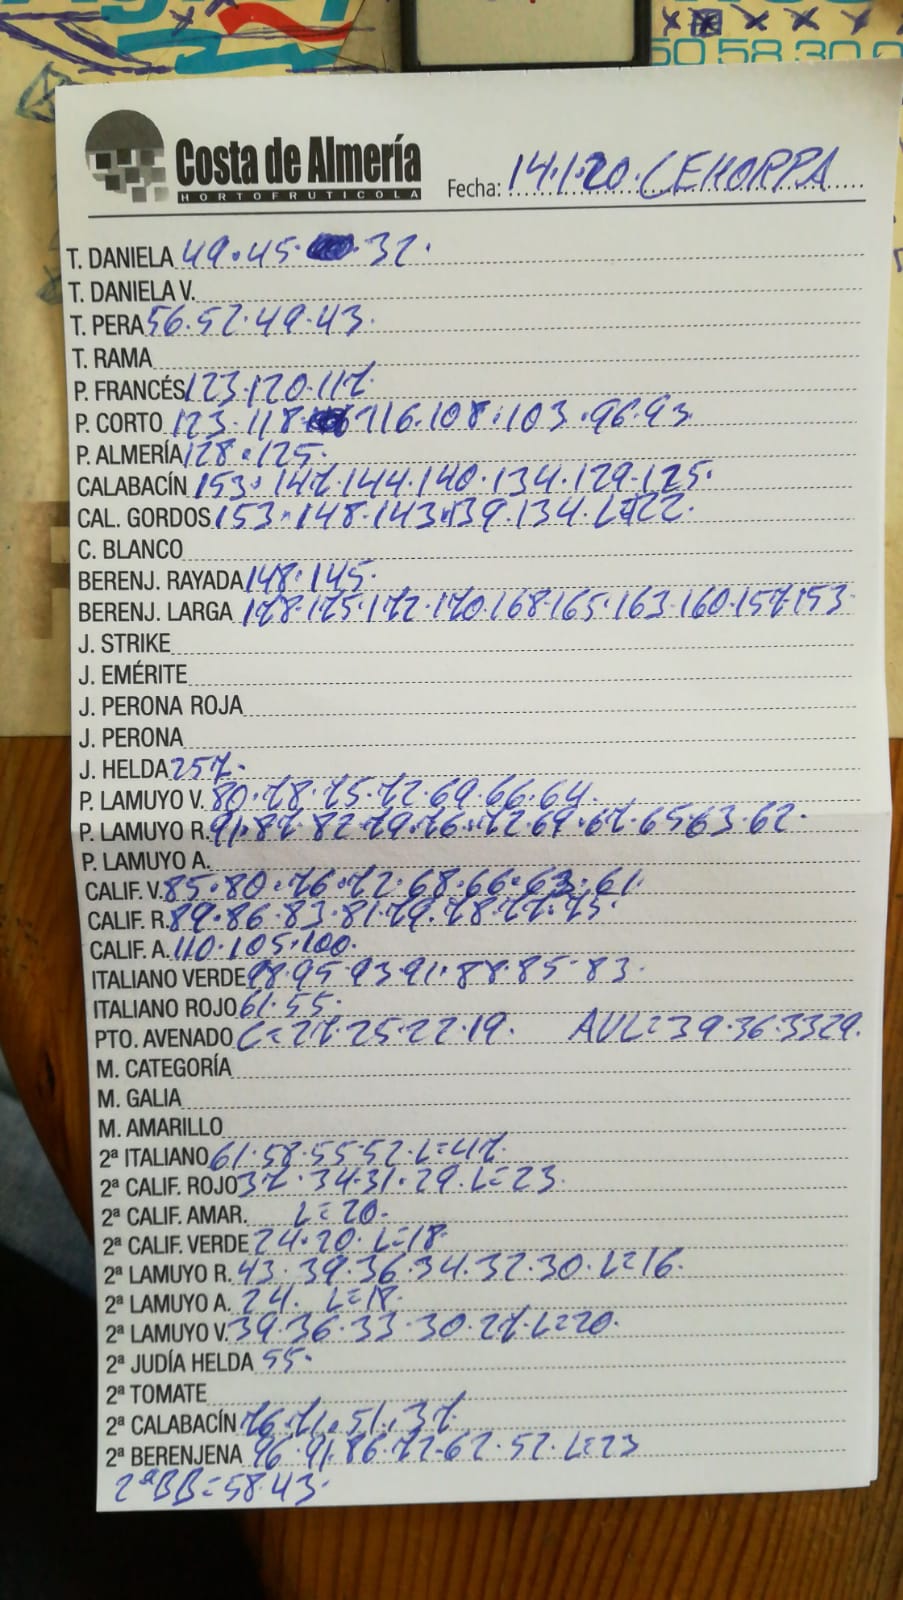 50 58 30 0
Costa de Almería
HORTOFRUTICOLA
Fecha: 14.1.20. CEHORPA
T. DANIELA 49.45. 32.
T. DANIELA V.
T. PERA 56.52.49.43.
T. RAMA
P. FRANCÉS 123.120.117.
P. CORTO 123.118. 116.108.103.96.93.
P. ALMERÍA 128.125.
CALABACÍN 153.147.144.140.134.129.125.
CAL. GORDOS 153.148.143.139.134.L=122.
C. BLANCO
BERENJ. RAYADA 148.145.
BERENJ. LARGA 178.175.172.170.168.165.163.160.157.153
J. STRIKE
J. EMÉRITE
J. PERONA ROJA
J. PERONA
J. HELDA 257.
P. LAMUYO V. 80.78.75.72.69.66.64.
P. LAMUYO R. 91.87.82.79.76.72.69.67.65.63.62.
P. LAMUYO A.
CALIF. V. 85.80.76.72.68.66.63.61.
CALIF. R. 89.86.83.81.79.78.77.75.
CALIF. A. 110.105.100.
ITALIANO VERDE 98.95.93.91.88.85.83.
ITALIANO ROJO 61.55.
PTO. AVENADO C=27.25.22.19. AVL=39.36.33 29.
M. CATEGORÍA
M. GALIA
M. AMARILLO
2ª ITALIANO 61.58.55.52.L=47.
2ª CALIF. ROJO 37.34.31.29.L=23.
2ª CALIF. AMAR. L=20.
2ª CALIF. VERDE 24.20.L=18.
2ª LAMUYO R. 43.39.36.34.32.30.L=16.
2ª LAMUYO A. 24. L=18.
2ª LAMUYO V. 39.36.33.30.27.L=20.
2ª JUDÍA HELDA 55.
2ª TOMATE
2ª CALABACÍN 76.71.51.37.
2ª BERENJENA 96.91.86.72.62.52.L=23
2ªBB=58.43.